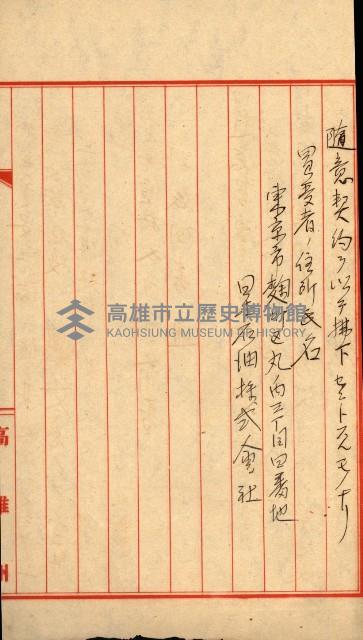 隨意契約ヲ以テ拂下セントスルモノナリ
買受者ノ住所氏名
東京市麹町区丸ノ内三丁目四番地
日本石油株式會社
高雄州
高雄市立歷史博物館
KAOHSIUNG MUSEUM OF HISTORY